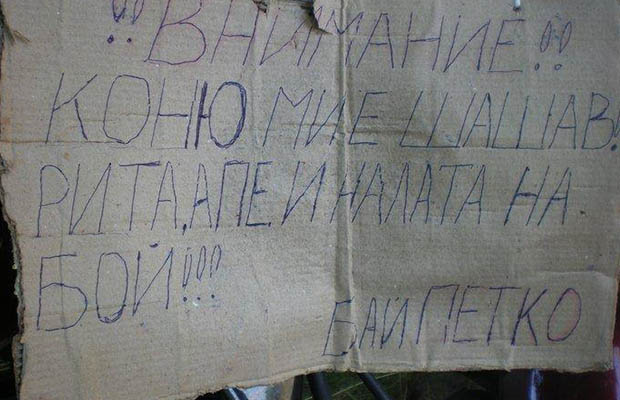 !!ВНИМАНИЕ!!
КОНЮ МИЕ ШАШАВ!
РИТА,АПЕ.И НАЛАТА НА
БОЙ!!!
БАЙ ПЕТКО